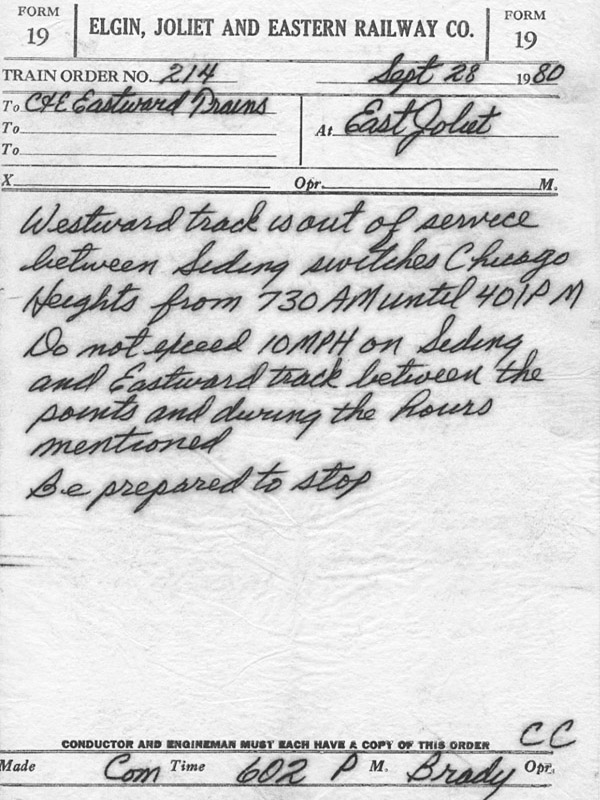 FORM 19
ELGIN, JOLIET AND EASTERN RAILWAY CO.
FORM 19
TRAIN ORDER NO. 214 Sept 28 1980
To C&E Eastward Trains
To
To
At East Joliet
X Opr. M.
Westward track is out of service
between Siding switches Chicago
Heights from 730 AM until 401 P M
Do not exceed 10 MPH on Siding
and Eastward track between the
points and during the hours
mentioned
Be prepared to stop
CC
CONDUCTOR AND ENGINEMAN MUST EACH HAVE A COPY OF THIS ORDER
Made Com Time 602 P M. Brady Opr.